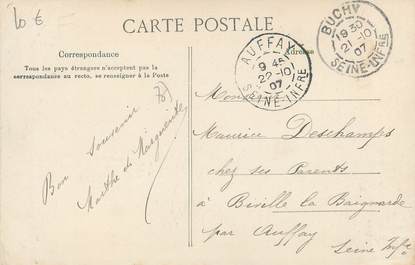 10 €
CARTE POSTALE
Correspondance
Tous les pays étrangers n'acceptent pas la
correspondance au recto, se renseigner à la Poste
Adresse
AUFFAY
9 45
22-10
07
SEINE-INFRE
BUCHY
19 30
21-10
07
SEINE-INFRE
Bon souvenir
Marthe de
Monsieur
Maurice Deschamps
chez ses Parents
à Biville la Baignarde
par Auffay
Seine Infre